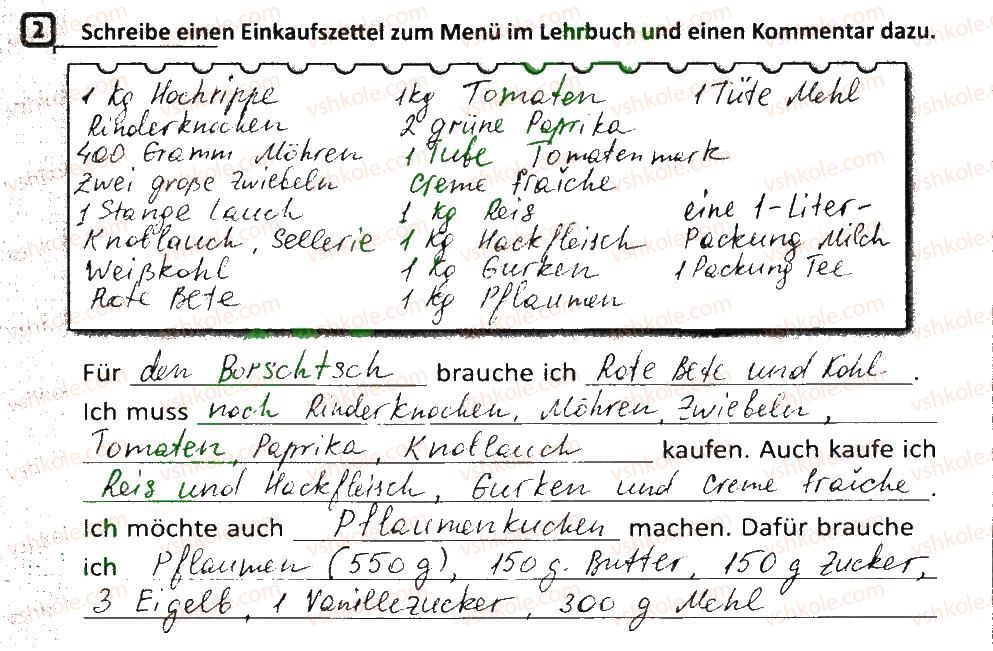 2 Schreibe einen Einkaufszettel zum Menü im Lehrbuch und einen Kommentar dazu.
1 kg Hochrippe
Rinderknochen
400 Gramm Möhren
Zwei große Zwiebeln
1 Stange Lauch
Knoblauch, Sellerie
Weißkohl
Rote Bete
1kg Tomaten
2 grüne Paprika
1 Tube Tomatenmark
Creme fraiche
1 kg Reis
1 kg Hackfleisch
1 kg Gurken
1 kg Pflaumen
1 Tüte Mehl
eine 1-Liter-
Packung Milch
1 Packung Tee
Für den Borschtsch brauche ich Rote Bete und Kohl.
Ich muss noch Rinderknochen, Möhren, Zwiebeln,
Tomaten, Paprika, Knoblauch kaufen. Auch kaufe ich
Reis und Hackfleisch, Gurken und Creme fraiche.
Ich möchte auch Pflaumenkuchen machen. Dafür brauche
ich Pflaumen (550 g), 150 g. Butter, 150 g Zucker,
3 Eigelb, 1 Vanillezucker, 300 g Mehl